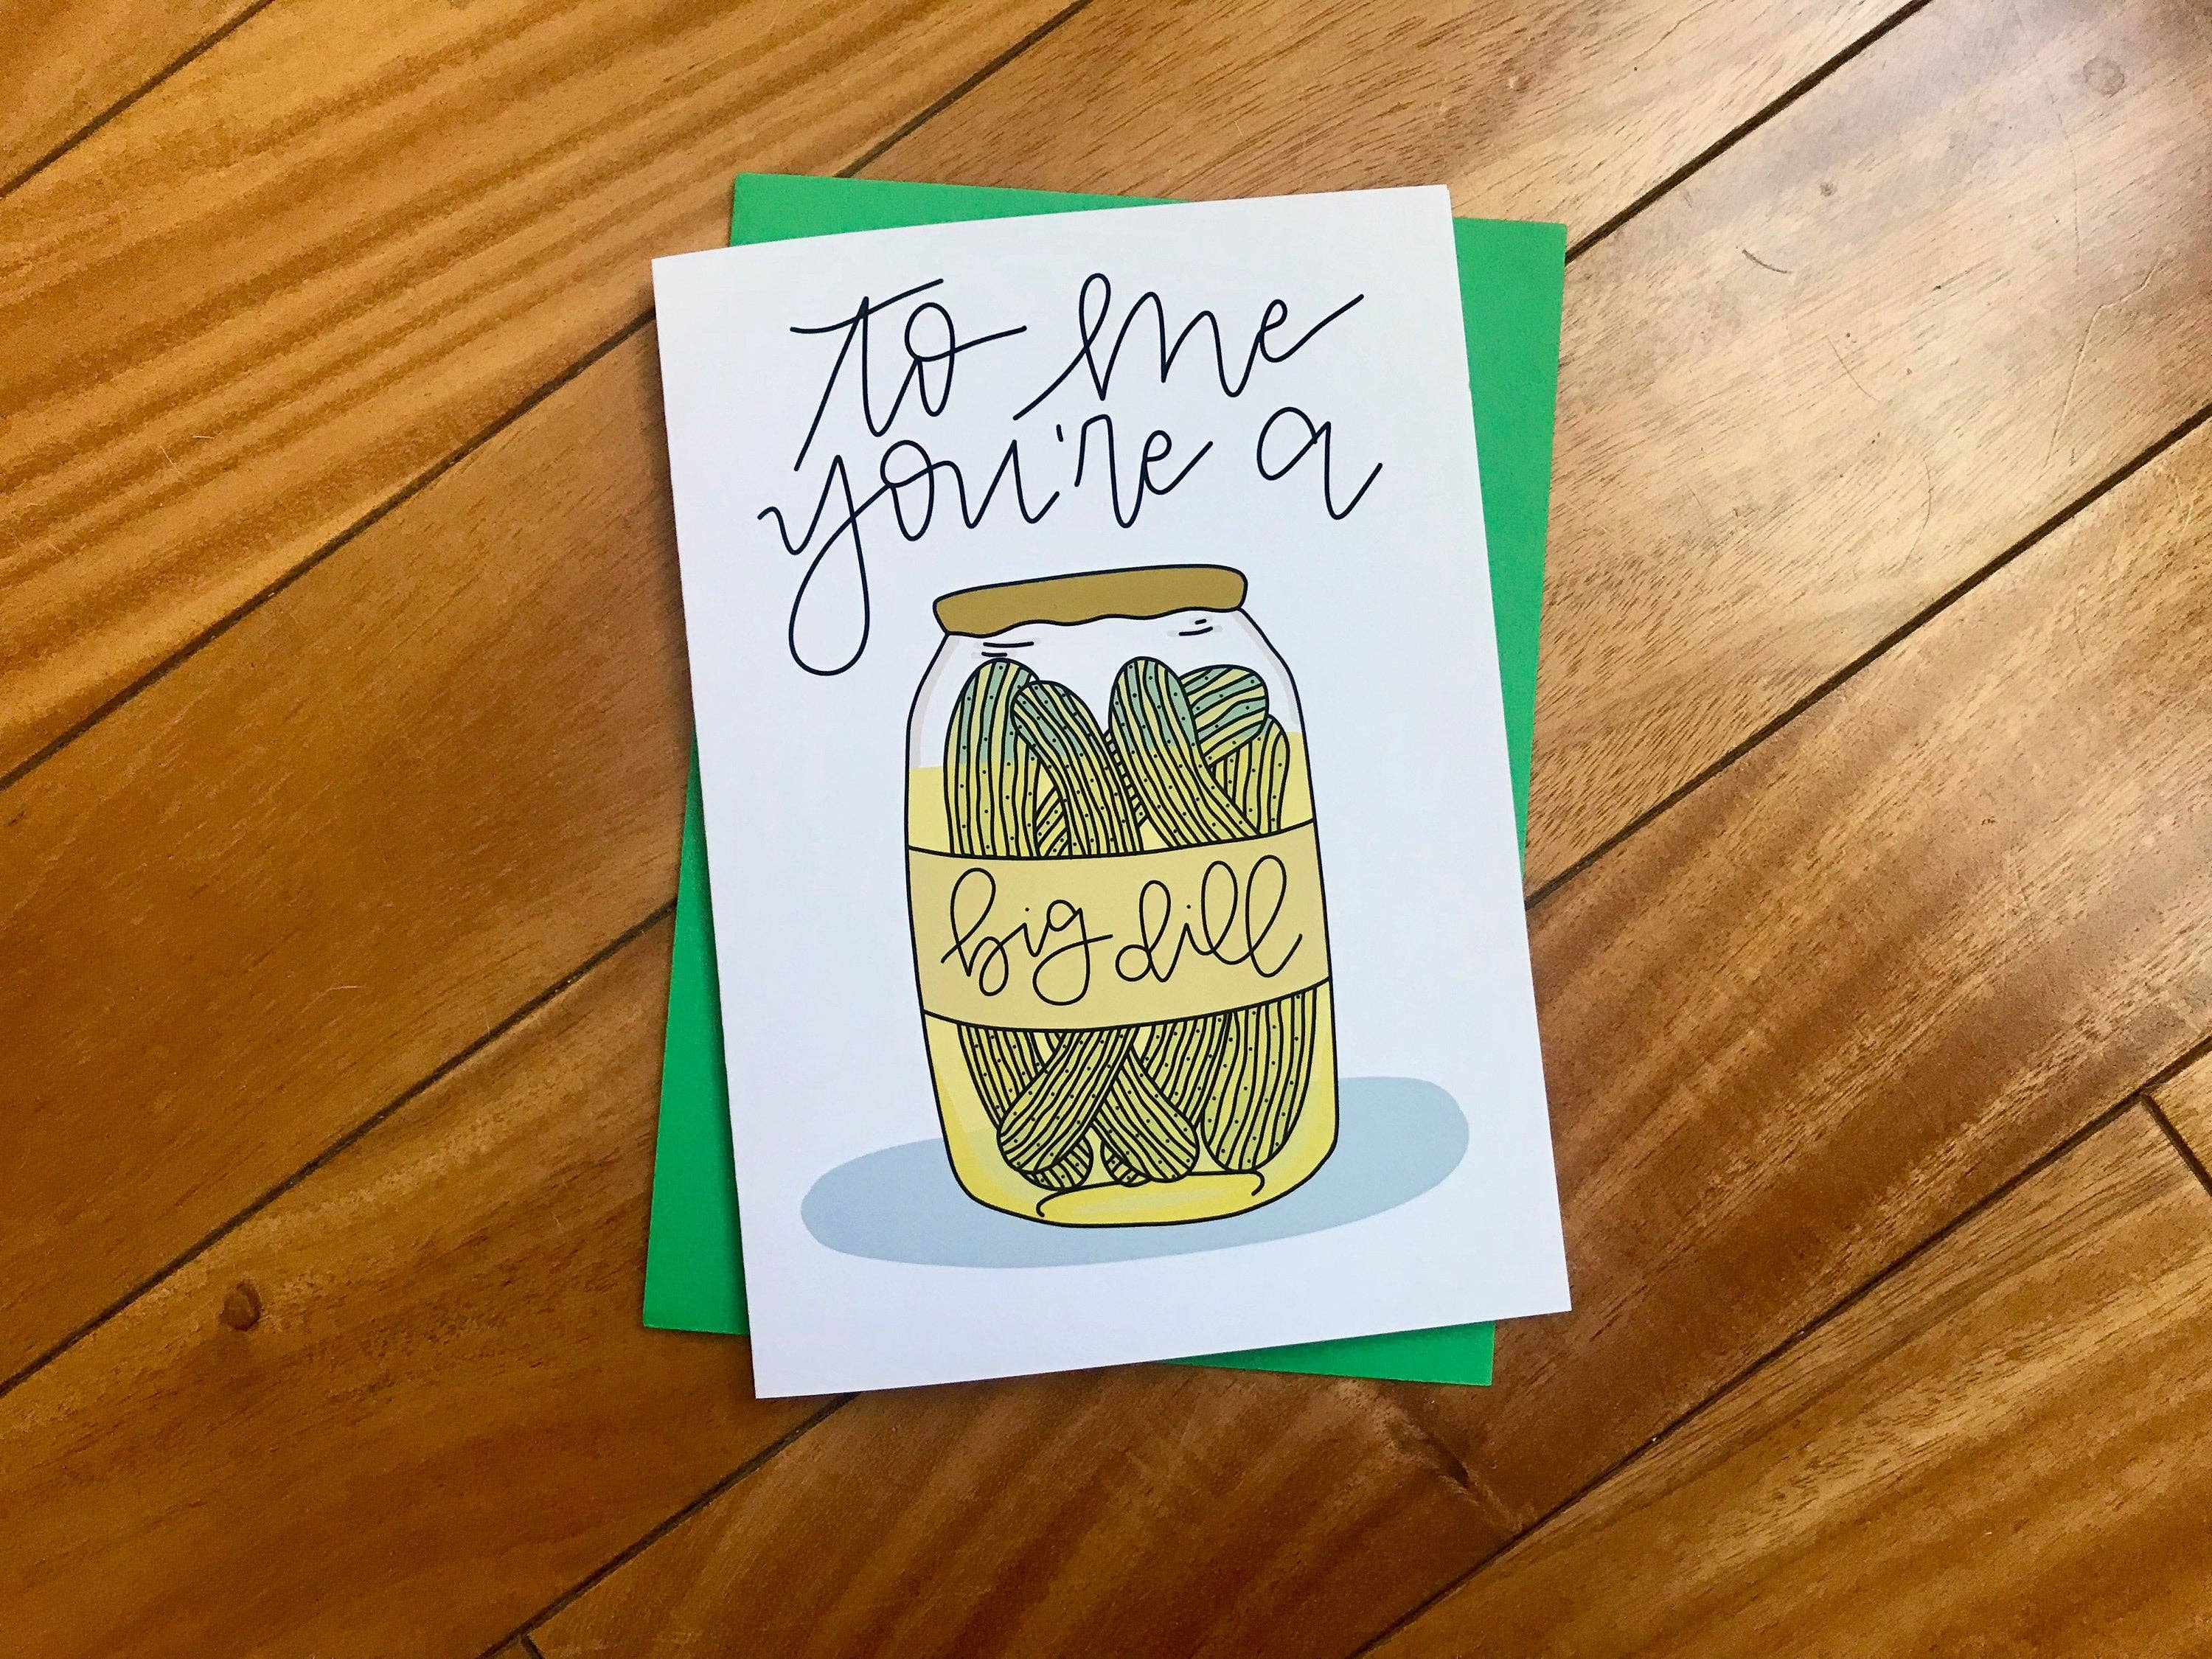 to me
you're a
big dill